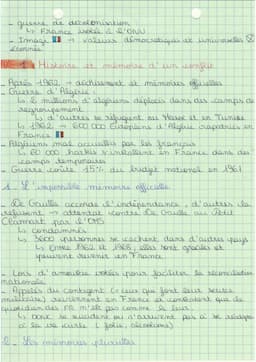 - guerre de décolonisation
↳ France isolée à l'ONU
- Image 🇫🇷 → valeurs démocratiques et universelles
écornée
1 Histoire et mémoire d'un conflit
- Après 1962 → déchirement et mémoires officielles
- Guerre d'Algérie :
↳ 2 millions d'algériens déplacés dans des camps de
regroupement
↳ d'autres se réfugient au Maroc et en Tunisie
↳ 1962 → 600 000 Européens d'Algérie rapatriés en
France 🇫🇷
- Algériens mal accueillis par les français
↳ 60 000 harkis s'installent en France dans des
camps temporaires
- Guerre coûte 15% du budget national en 1961
1. L'impossible mémoire officielle
- De Gaulle accorde l'indépendance, d'autres la
refusent → attentat contre De Gaulle au Petit
Clamart par l'OAS
↳ condamnés
↳ 3000 personnes se cachent dans d'autres pays
↳ Entre 1962 et 1968, elles sont graciés et
peuvent revenir en France
- Lois d'amnistie votées pour faciliter la réconciliation
nationale
- Appelés du contingent (ceux qui font leur service
militaire) reviennent en France et constatent que
quotidien des FR n'est pas comme le leur
↳ donc se suicident ou n'arrivent pas à se réadapter
à la vie (folie, alcoolisme)
2. Les mémoires plurielles